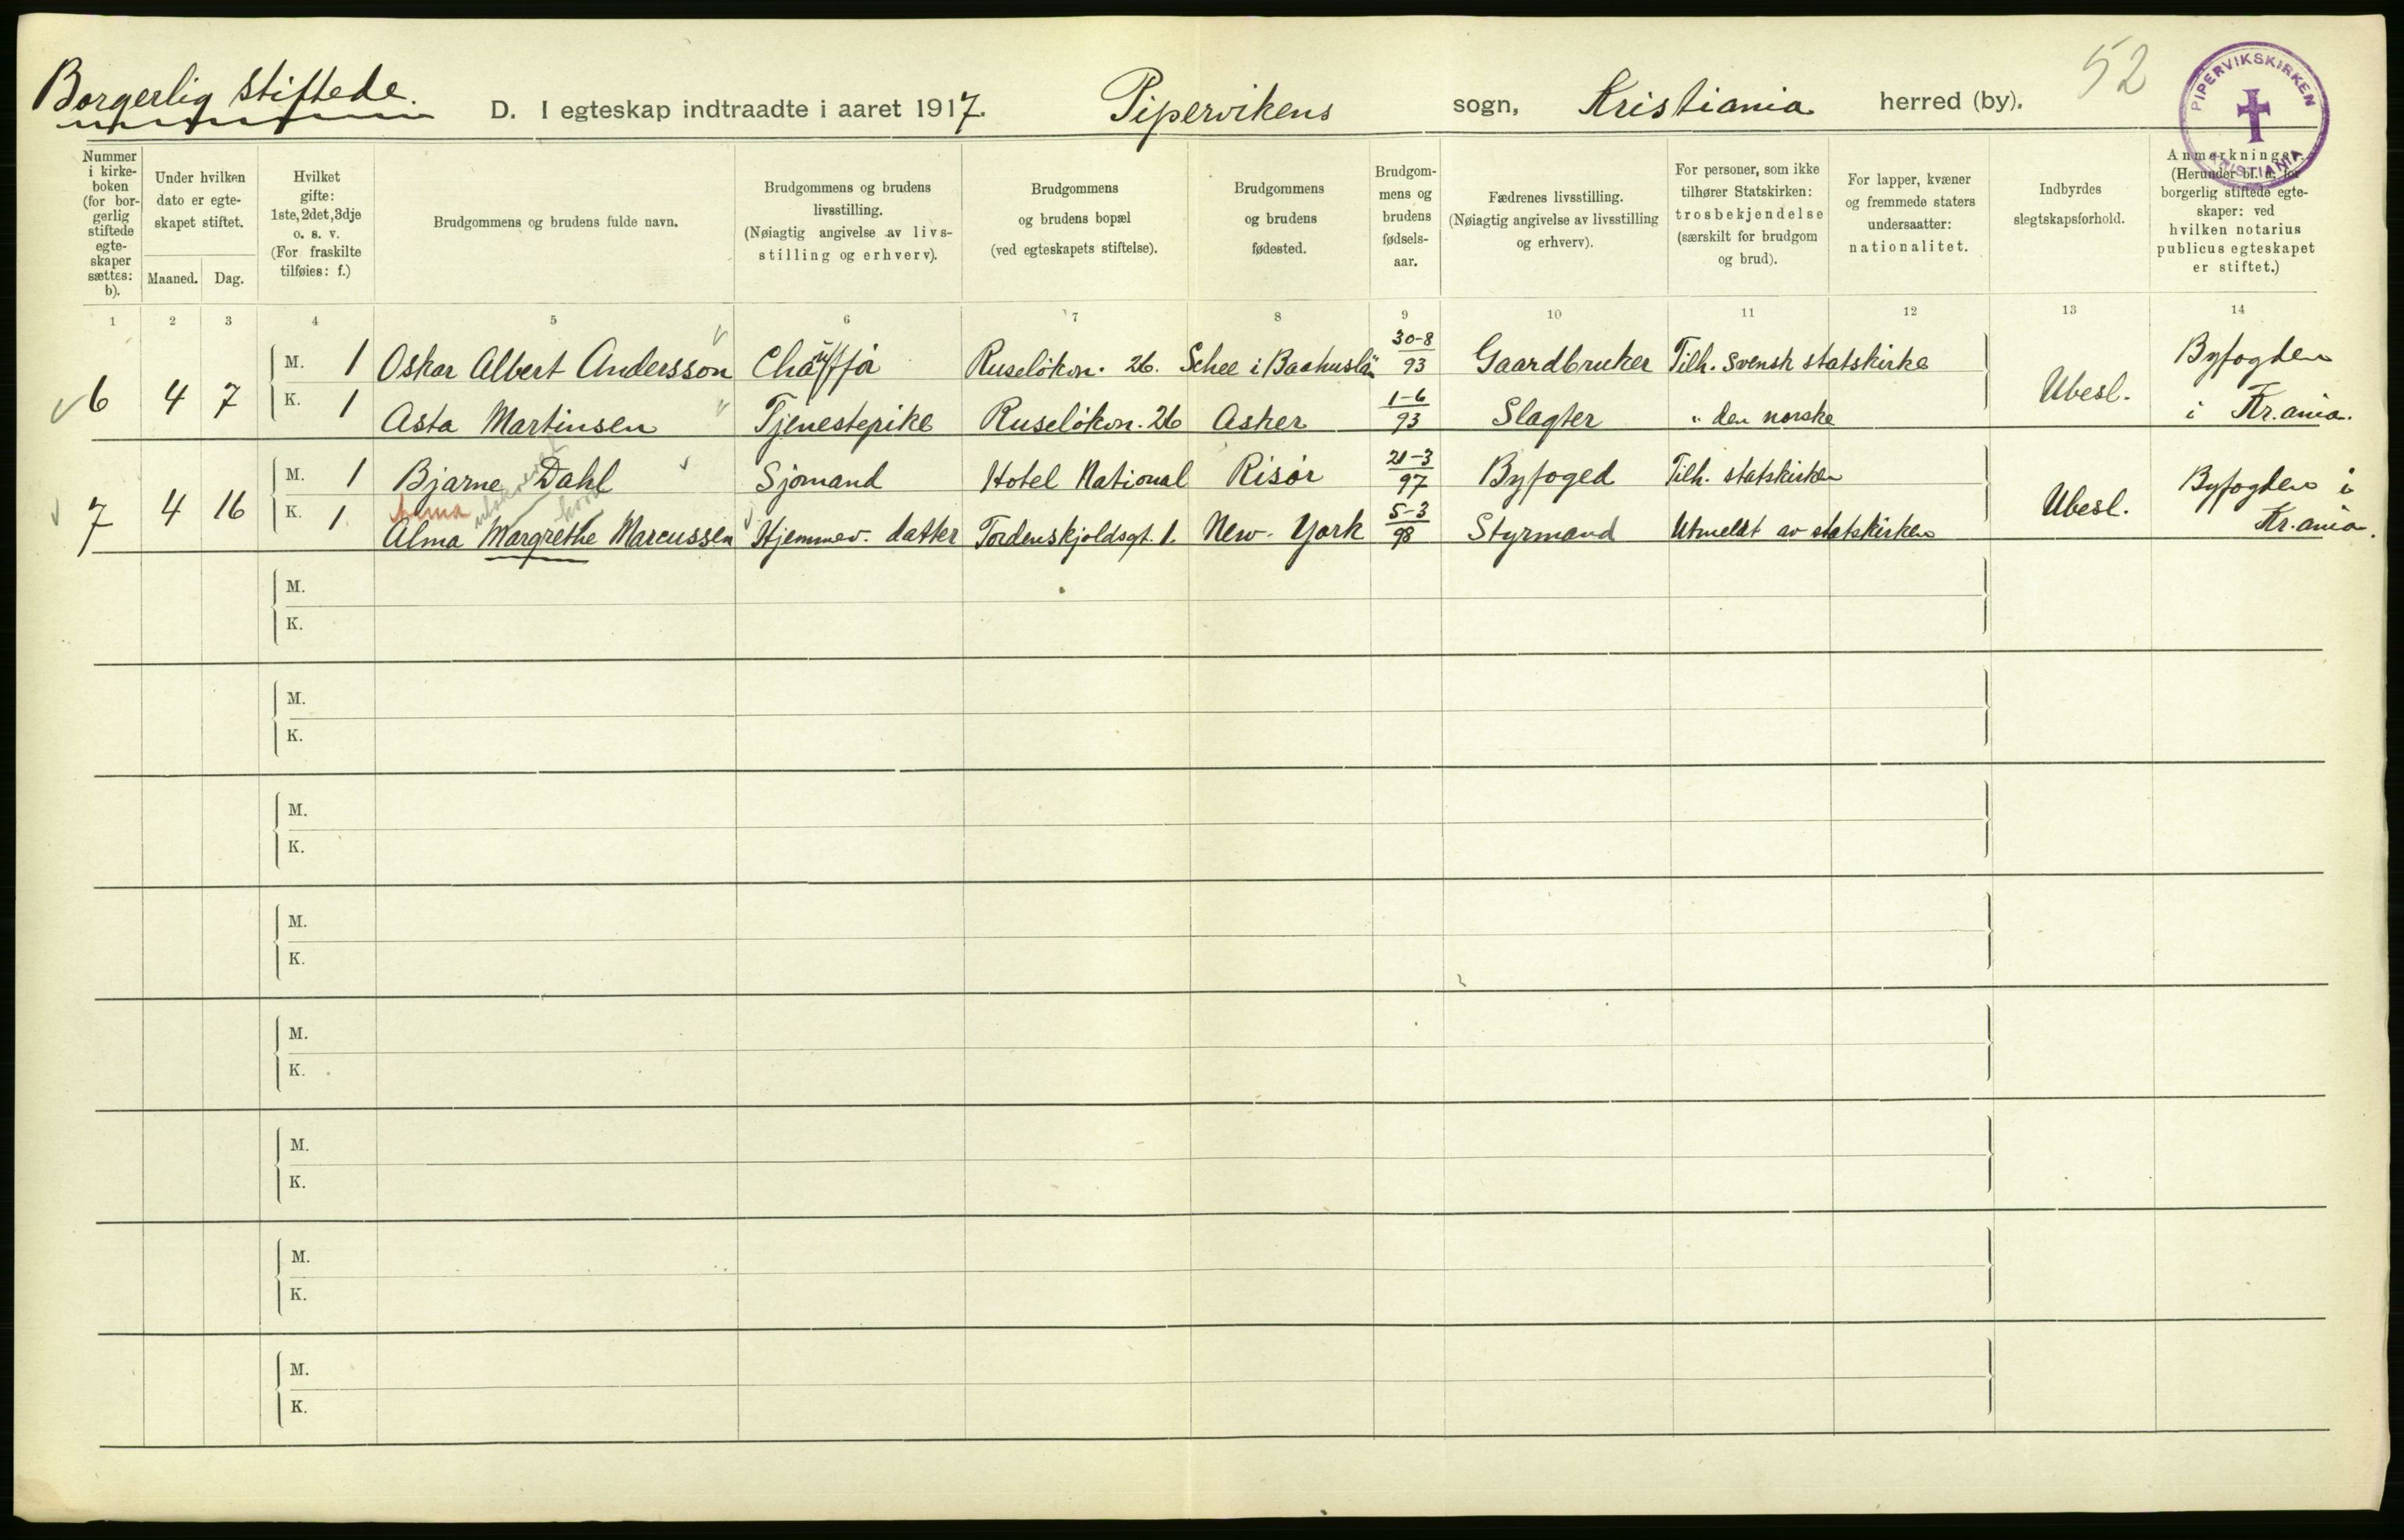 Borgerlig stiftede.
D. I egteskap indtraadte i aaret 1917. Pipervikens sogn, Kristiania herred (by).
52
PIPERVIKSKIRKEN
KRISTIANIA
Nummer
i kirke-
boken
(for bor-
gerlig
stiftede
egte-
skaper
sættes:
b).
Under hvilken
dato er egte-
skapet stiftet.
Maaned. Dag.
Hvilket
gifte:
1ste, 2det, 3dje
o. s. v.
(For fraskilte
tilføies: f.)
Brudgommens og brudens fulde navn.
Brudgommens og brudens
livsstilling.
(Nøiagtig angivelse av livs-
stilling og erhverv).
Brudgommens
og brudens bopæl
(ved egteskapets stiftelse).
Brudgommens
og brudens
fødested.
Brudgom-
mens og
brudens
fødsels-
aar.
Fædrenes livsstilling.
(Nøiagtig angivelse av livsstilling
og erhverv).
For personer, som ikke
tilhører Statskirken:
trosbekjendelse
(særskilt for brudgom
og brud).
For lapper, kvæner
og fremmede staters
undersaatter:
nationalitet.
Indbyrdes
slegtskapsforhold.
Anmerkninger.
(Herunder bl. a. for
borgerlig stiftede egte-
skaper: ved
hvilken notarius
publicus egteskapet
er stiftet.)
1 2 3 4 5 6 7 8 9 10 11 12 13 14
6 4 7 M. 1 Oskar Albert Andersson Chauffør Ruseløkvn. 26. Schee i Baahuslän 30-8 93 Gaardbruker Tilh. svensk statskirke Ubesl. Byfogden
K. 1 Asta Martinsen Tjenestepike Ruseløkvn. 26 Asker 1-6 93 Slagter " den norske i Kr.ania.
7 4 16 M. 1 Bjarne Dahl Sjømand Hotel National Risør 21-3 97 Byfoged Tilh. statskirken Ubesl. Byfogden i
K. 1 Alma Margrethe Marcussen Hjemmev. datter Tordenskjoldsgt. 1. New-York 5-3 98 Styrmand Utmeldt av statskirken Kr.ania.
M.
K.
M.
K.
M.
K.
M.
K.
M.
K.
M.
K.
M.
K.
M.
K.